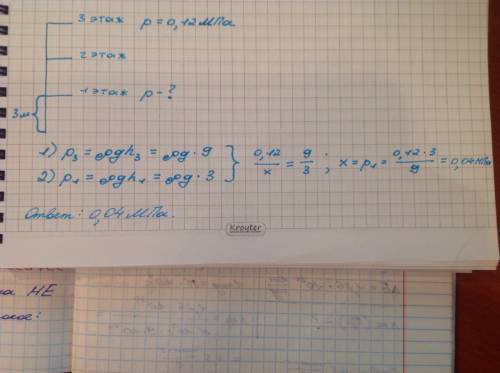 3 этаж p = 0,12 МПа
2 этаж
1 этаж p - ?
3м
1) p₃ = ρgh₃ = ρg · 9
2) p₁ = ρgh₁ = ρg · 3
0,12/x = 9/3 ; x = p₁ = 0,12 · 3/9 = 0,04 МПа
Ответ: 0,04 МПа.
Krouter
НЕ